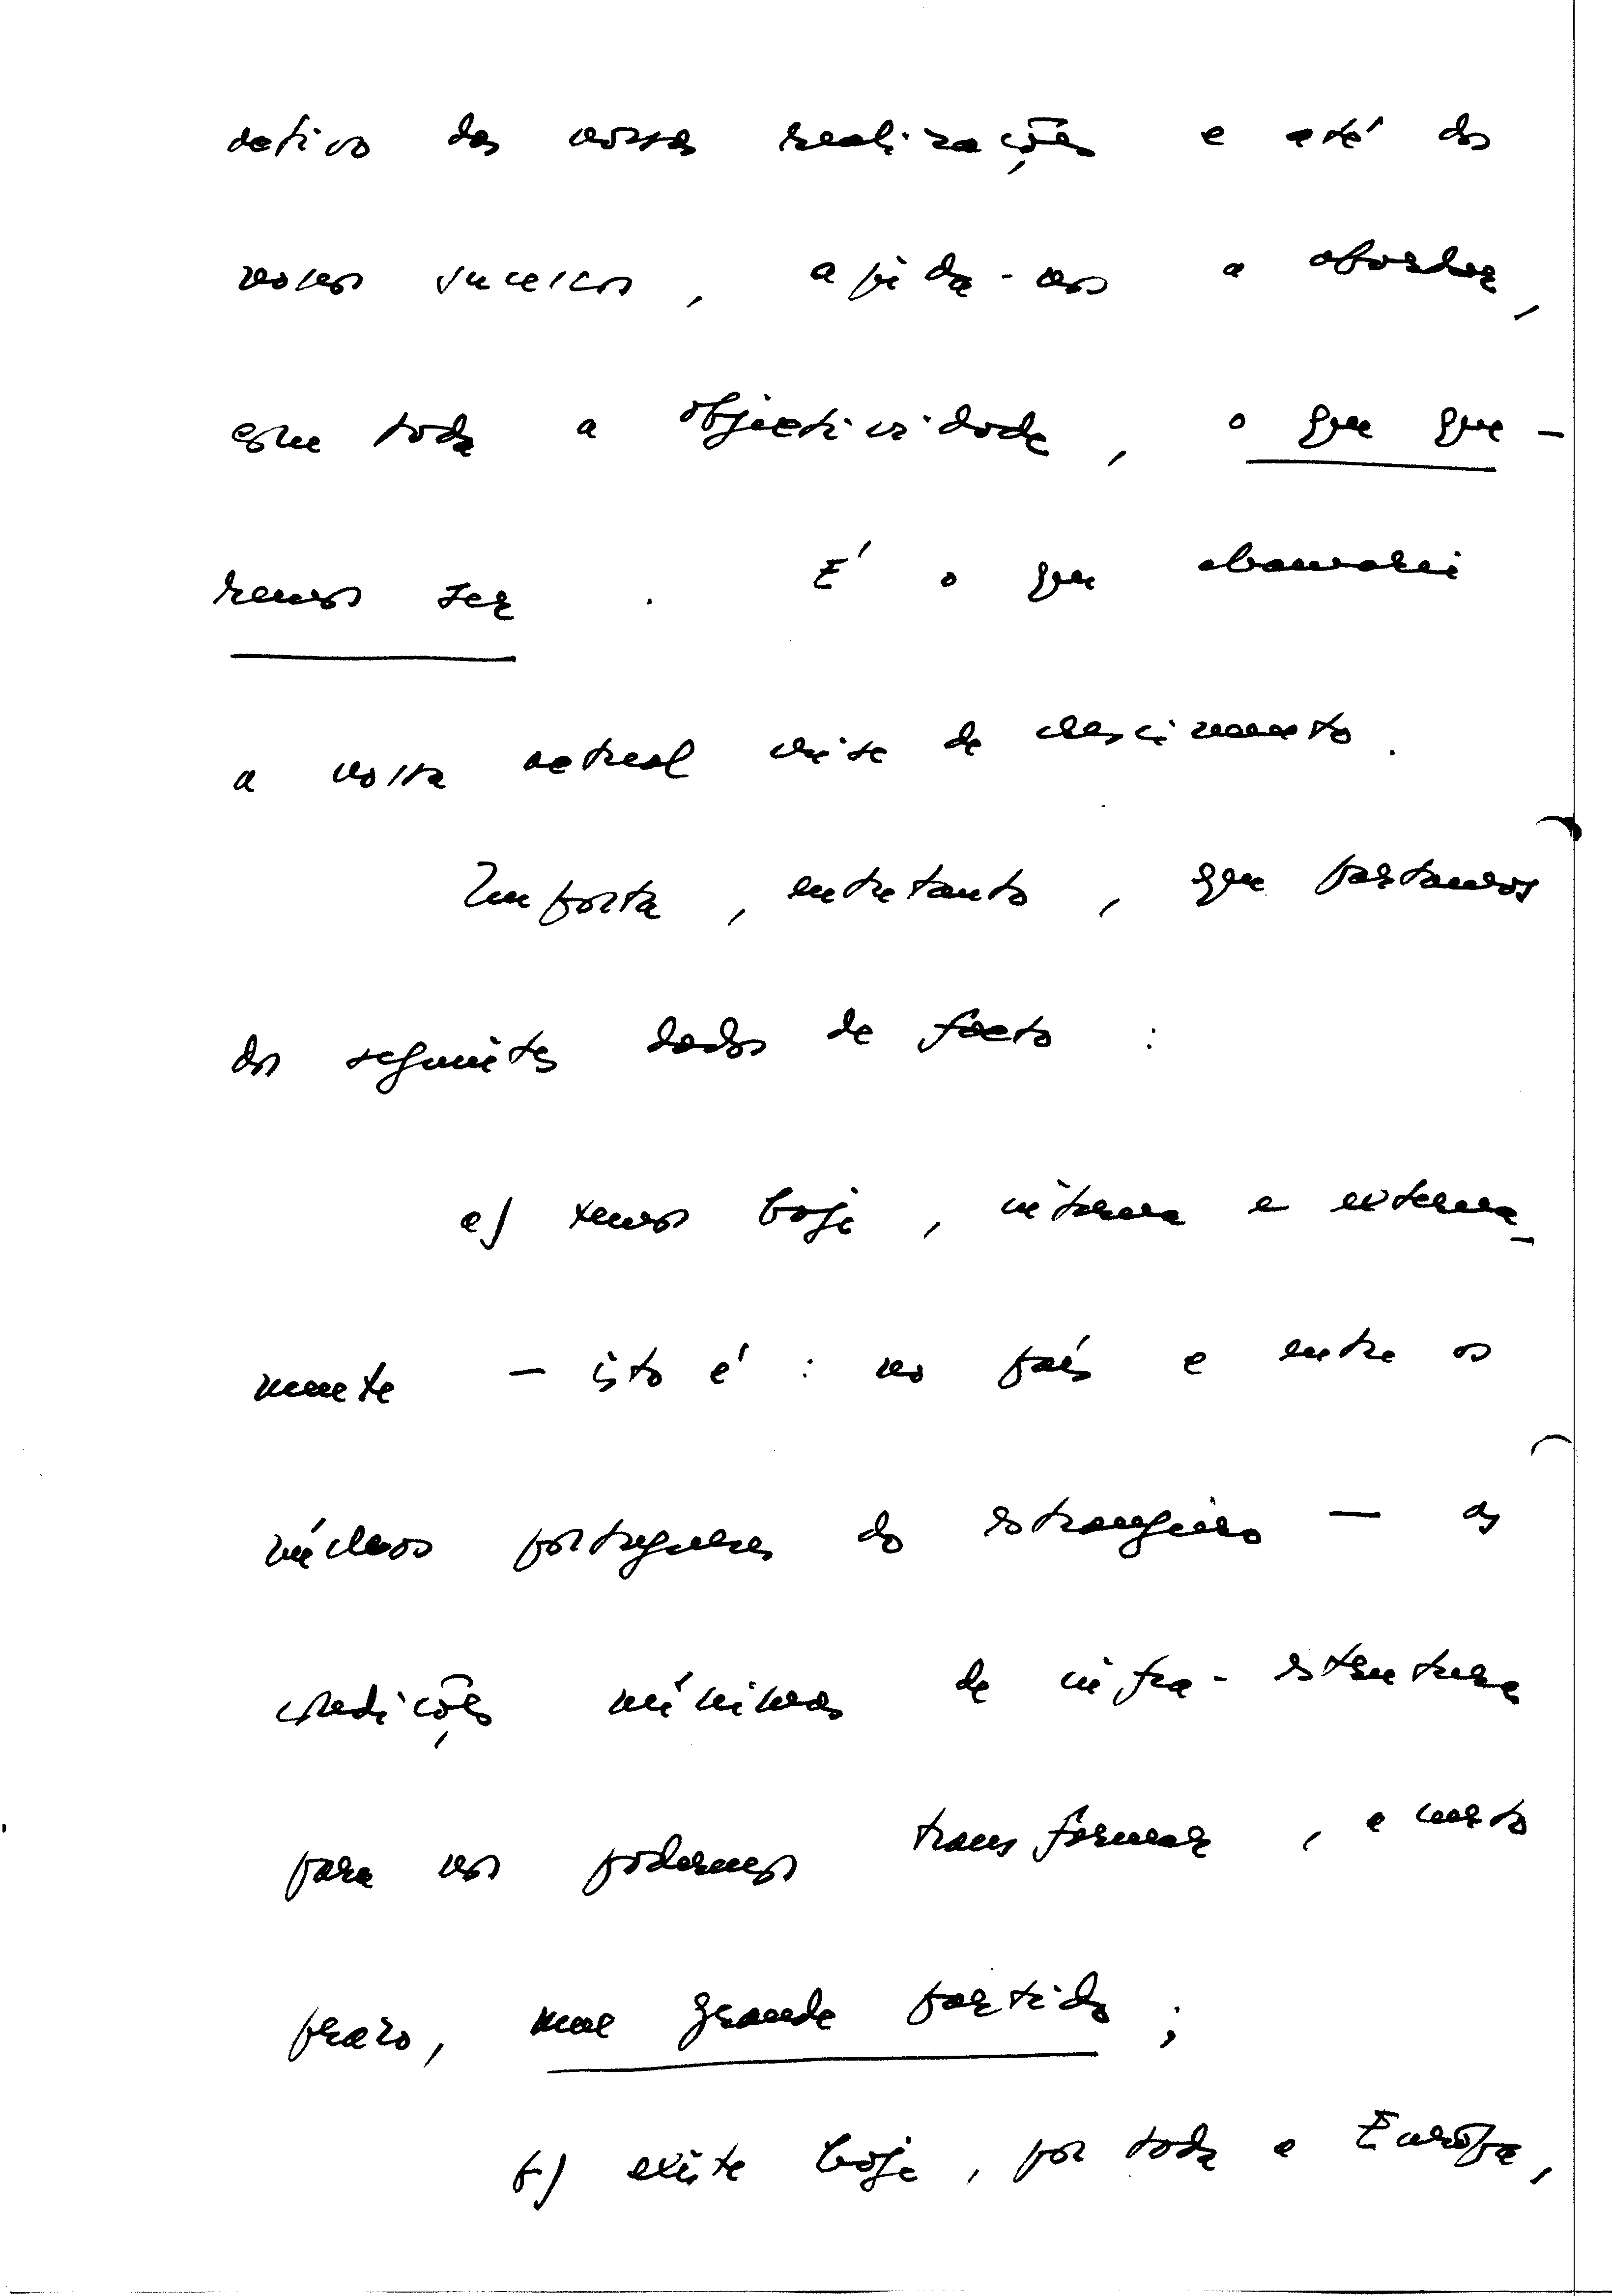 detivo das nossas realizações e até dos
nossos sucessos, ajuda-nos a abordar,
com toda a objectividade, o que que-
remos ser. É o que chamarei
a nossa actual crise de crescimento.
Importa, entretanto, que partamos
dos seguintes dados de facto:
a) temos hoje, interna e externa-
mente - isto é: no país e entre os
núcleos portugueses do estrangeiro - as
condições mínimas de infra-estrutura
para nos podermos transformar, a curto
prazo, num grande partido;
b) existe hoje, por toda a Europa,